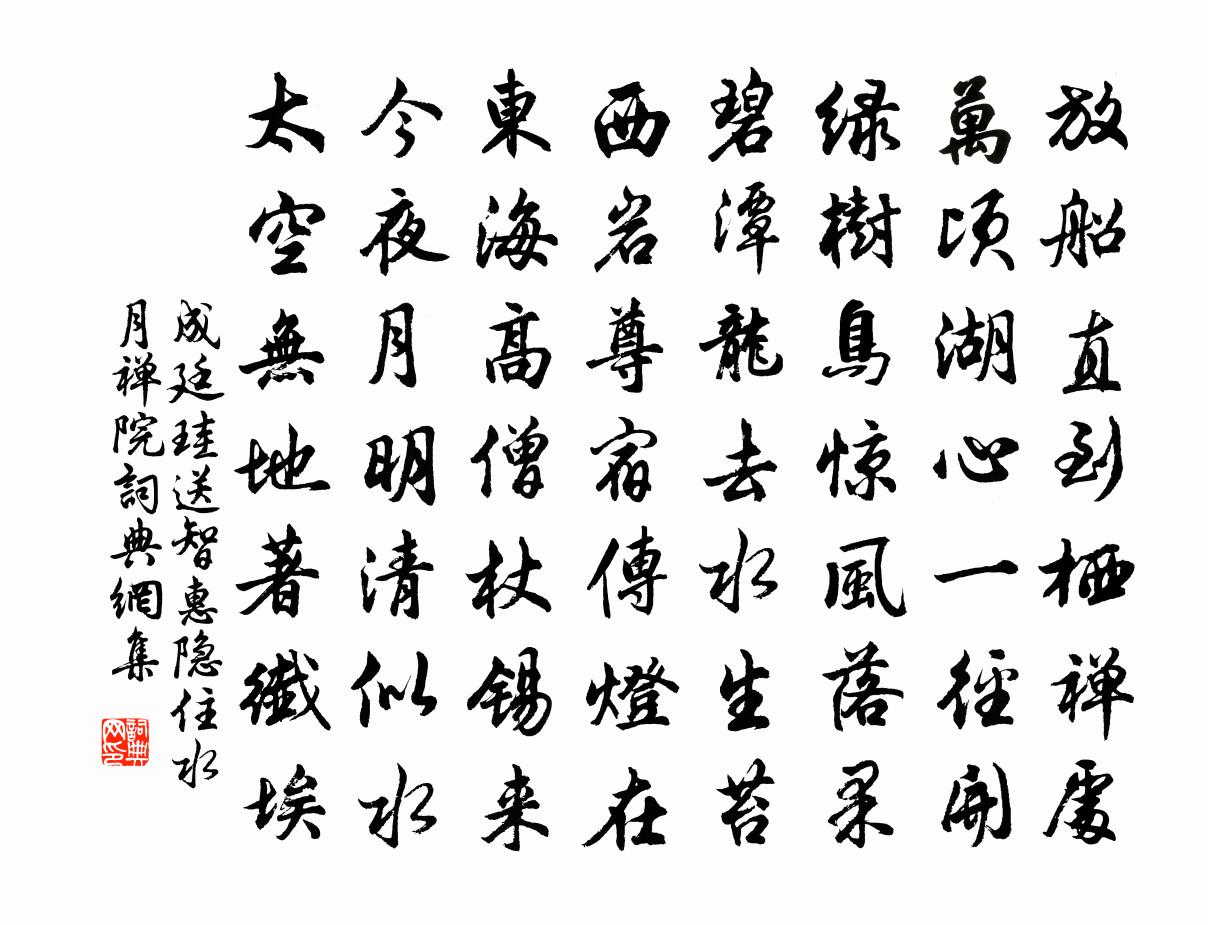 放船直到栖禅處
萬頃湖心一徑開
緑樹鳥惊風落果
碧潭龍去水生苔
西岩尊宿傳燈在
東海高僧杖锡来
今夜月明清似水
太空無地著纖埃
成廷珪送智惠隐住水
月禅院詞典網集
詞典网印